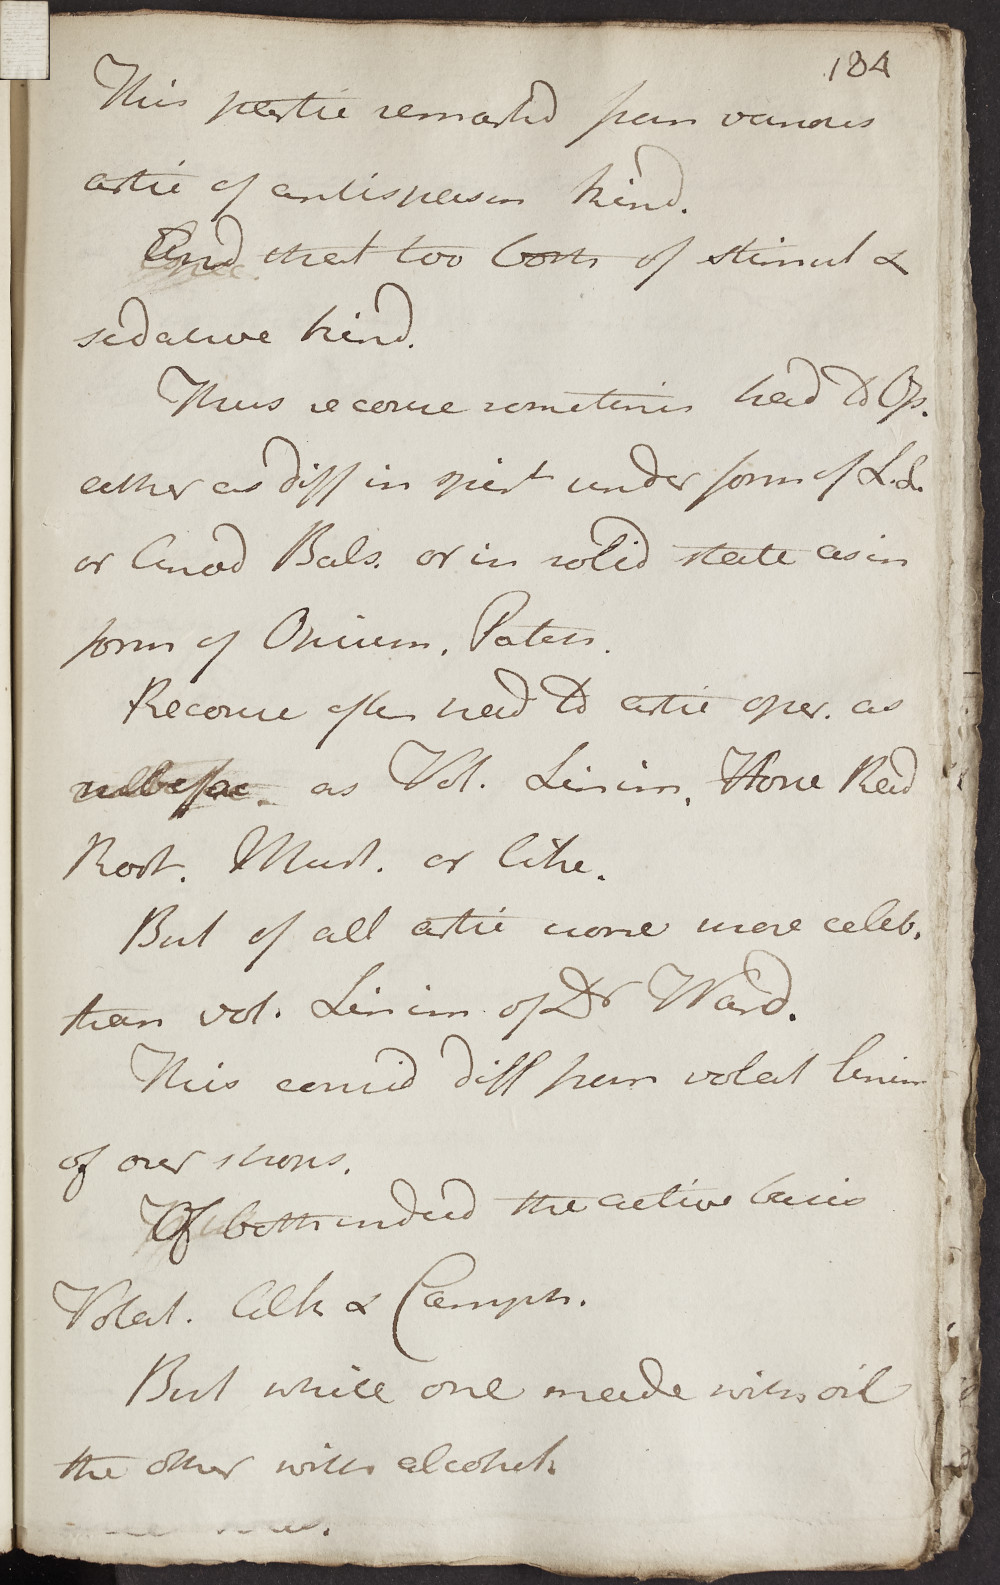 184
This partic remarkd from various
artic of antispasm kind.
And that too both of stimul &
sedative kind.
Thus recourse sometimes had to Op.
either as diff in spirit under form of L.L.
or Anod Bals. or in solid state as in
form of Opium. Paten.
Recourse often had to artic oper. as
rubefac. as Vol. Linim, Horse Rad
Root. Must. or like.
But of all artic none more celeb.
than vol. Linim of Dr Ward.
This consid diff from volat linim
of our shops.
Of both indeed the active basis
Volat. Alk & Camph.
But while one made with oil
the other with alcohol.